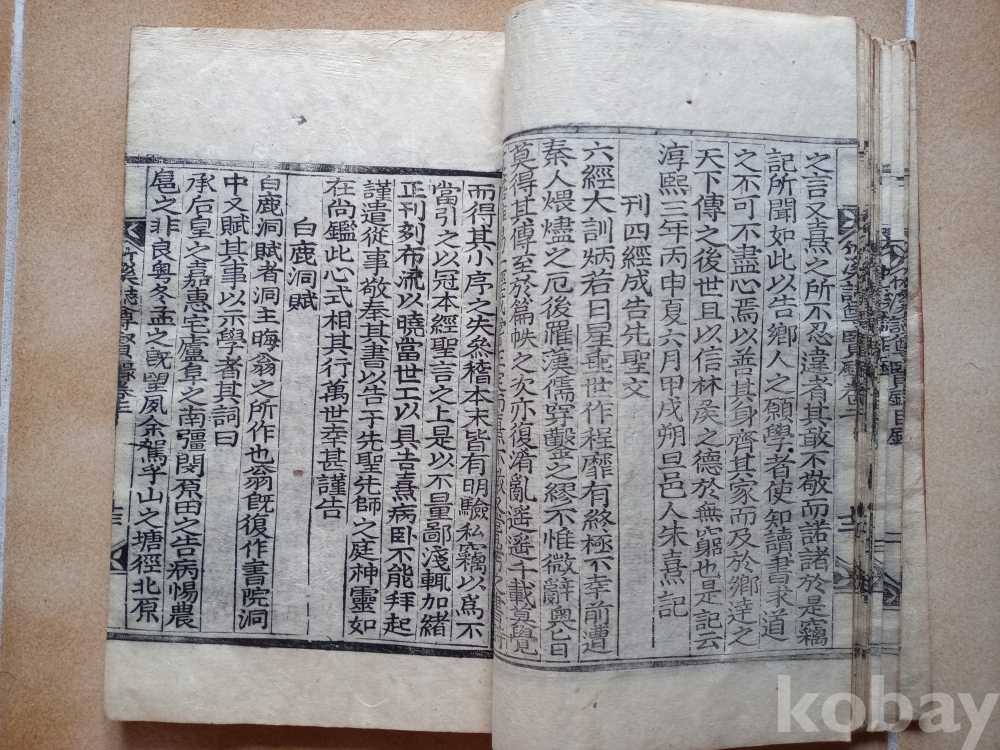 之言又熹之所不忍違者其敢不敬而諾諸於是竊
記所聞如此以告鄉人之願學者使知讀書求道
之不可不盡心焉以善其身齊其家而及於鄉達之
天下傳之後世且以信林侯之德於無窮也是記云
淳熙三年丙申夏六月甲戌朔旦邑人朱熹記
刊四經成告先聖文
六經大訓炳若日星垂世作程靡有終極不幸前遭
秦人煨燼之厄後罹漢儒穿鑿之繆不惟微辭奧旨
莫得其傳至於篇帙之次亦復淆亂遙遙千載莫覺
而得其小序之失參稽本末皆有明驗私竊以爲不
當引之以冠本經聖言之上是以不量鄙淺輒加緒
正刊刻布流以曉當世工以具告熹病臥不能拜起
謹遣從事敬奉其書以告于先聖先師之庭神靈如
在尚鑑此心式相其行萬世幸甚謹告
白鹿洞賦
白鹿洞賦者洞主晦翁之所作也翁旣復作書院洞
中又賦其事以示學者其詞曰
承后皇之嘉惠宅廬阜之南疆閔原田之告病惕農
扈之非良粵冬孟之旣望夙余駕乎山之塘徑北原
kobay